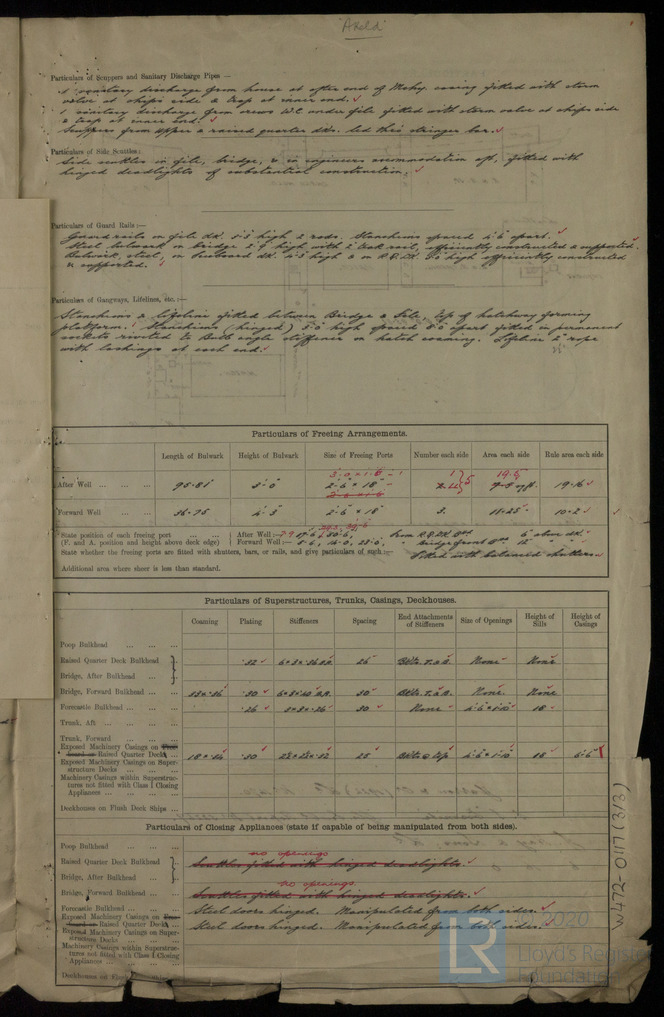 "Akeld"
Particulars of Scuppers and Sanitary Discharge Pipes —
1 sanitary discharge from house at after end of Mchy. casing fitted with storm
valve at ships side & trap at inner end.
1 sanitary discharge from crews WC under f'cle fitted with storm valve at ships side
& trap at inner end.
Scuppers from upper & raised quarter dks. led thro stringer bar.
Particulars of Side Scuttles:
Side scuttles in f'cle, bridge, & in engineers accommodation aft, fitted with
hinged deadlights of substantial construction.
Particulars of Guard Rails :—
Guard rails on f'cle dk. high 2 rods. Stanchions spaced 4'.6" apart.
Steel bulwark, on bridge high with teak rail, efficiently constructed & supported.
Bulwark, steel, on dk. high & on R.Q.Dk. high efficiently constructed
& supported.
Particulars of Gangways, Lifelines, etc. :—
Stanchions & lifeline fitted between Bridge & F'cle, top of hatchway forming
platform. Stanchions (hinged) high spaced apart fitted in permanent
sockets riveted to Bulb angle stiffener on hatch coaming. Lifeline 2" rope
with lashings at each end.
Particulars of Freeing Arrangements.
Length of Bulwark Height of Bulwark Size of Freeing Ports Number each side Area each side Rule area each side
After Well 95.81' 3'.0" 2'.6" × 18" 19.16
Forward Well 36.75 4'.3" 2'.6" × 18" 3. 11.25 10.2
State position of each freeing port After Well :—
(F. and A. position and height above deck edge) Forward Well :— 5'.6, 14'.0, 23'.0, Bridge front 12"
State whether the freeing ports are fitted with shutters, bars, or rails, and give particulars of such :— Fitted with balanced shutters
Additional area where sheer is less than standard.
Particulars of Superstructures, Trunks, Casings, Deckhouses.
Coaming Plating Stiffeners Spacing End Attachments of Stiffeners Size of Openings Height of Sills Height of Casings
Poop Bulkhead
Raised Quarter Deck Bulkhead .32 26" Bkts. T. & B. None None
Bridge, After Bulkhead
Bridge, Forward Bulkhead .30 30" Bkts. T. & B. None None
Forecastle Bulkhead .26 30" None 18"
Trunk, Aft
Trunk, Forward
Exposed Machinery Casings on Freeboard or Raised Quarter Decks .30 Bkts @ top 6'.6"
Exposed Machinery Casings on Superstructure Decks
Machinery Casings within Superstructures not fitted with Class I Closing Appliances
Deckhouses on Flush Deck Ships
Particulars of Closing Appliances (state if capable of being manipulated from both sides).
Poop Bulkhead
no openings
Raised Quarter Deck Bulkhead Scuttles fitted with hinged deadlights.
Bridge, After Bulkhead
no openings
Bridge, Forward Bulkhead Scuttles fitted with hinged deadlights.
Forecastle Bulkhead Steel doors hinged. Manipulated from both sides.
Exposed Machinery Casings on Freeboard or Raised Quarter Decks Steel doors hinged. Manipulated from both sides.
Exposed Machinery Casings on Superstructure Decks
Machinery Casings within Superstructures not fitted with Class I Closing Appliances
Deckhouses on Flush Deck Ships
W472-0117 (3/3)
LR © 2020
Lloyd's Register
Foundation